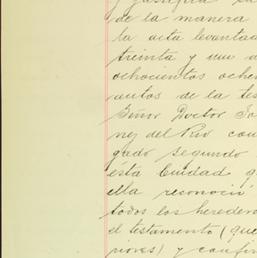 y justifica
de la manera
la acta levantad
treinta y un d
ochocientos oche
autos de la tes
Señor Doctor Jo
nez del Rio con
gado segundo
esta Ciudad q
ella reconoció
todos los heredero
el testamento (que
riores) y confir